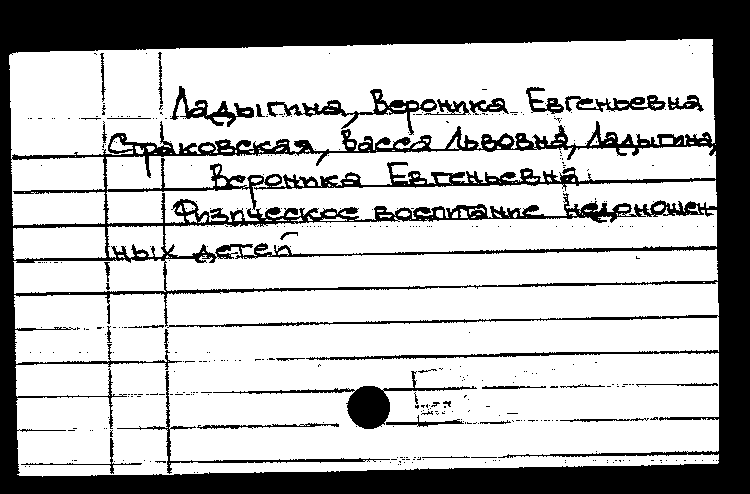 Ладыгина, Вероника Евгеньевна
Страковская, Васса Львовна, Ладыгина,
Вероника Евгеньевна.
Физическое воспитание недоношен-
ных детей